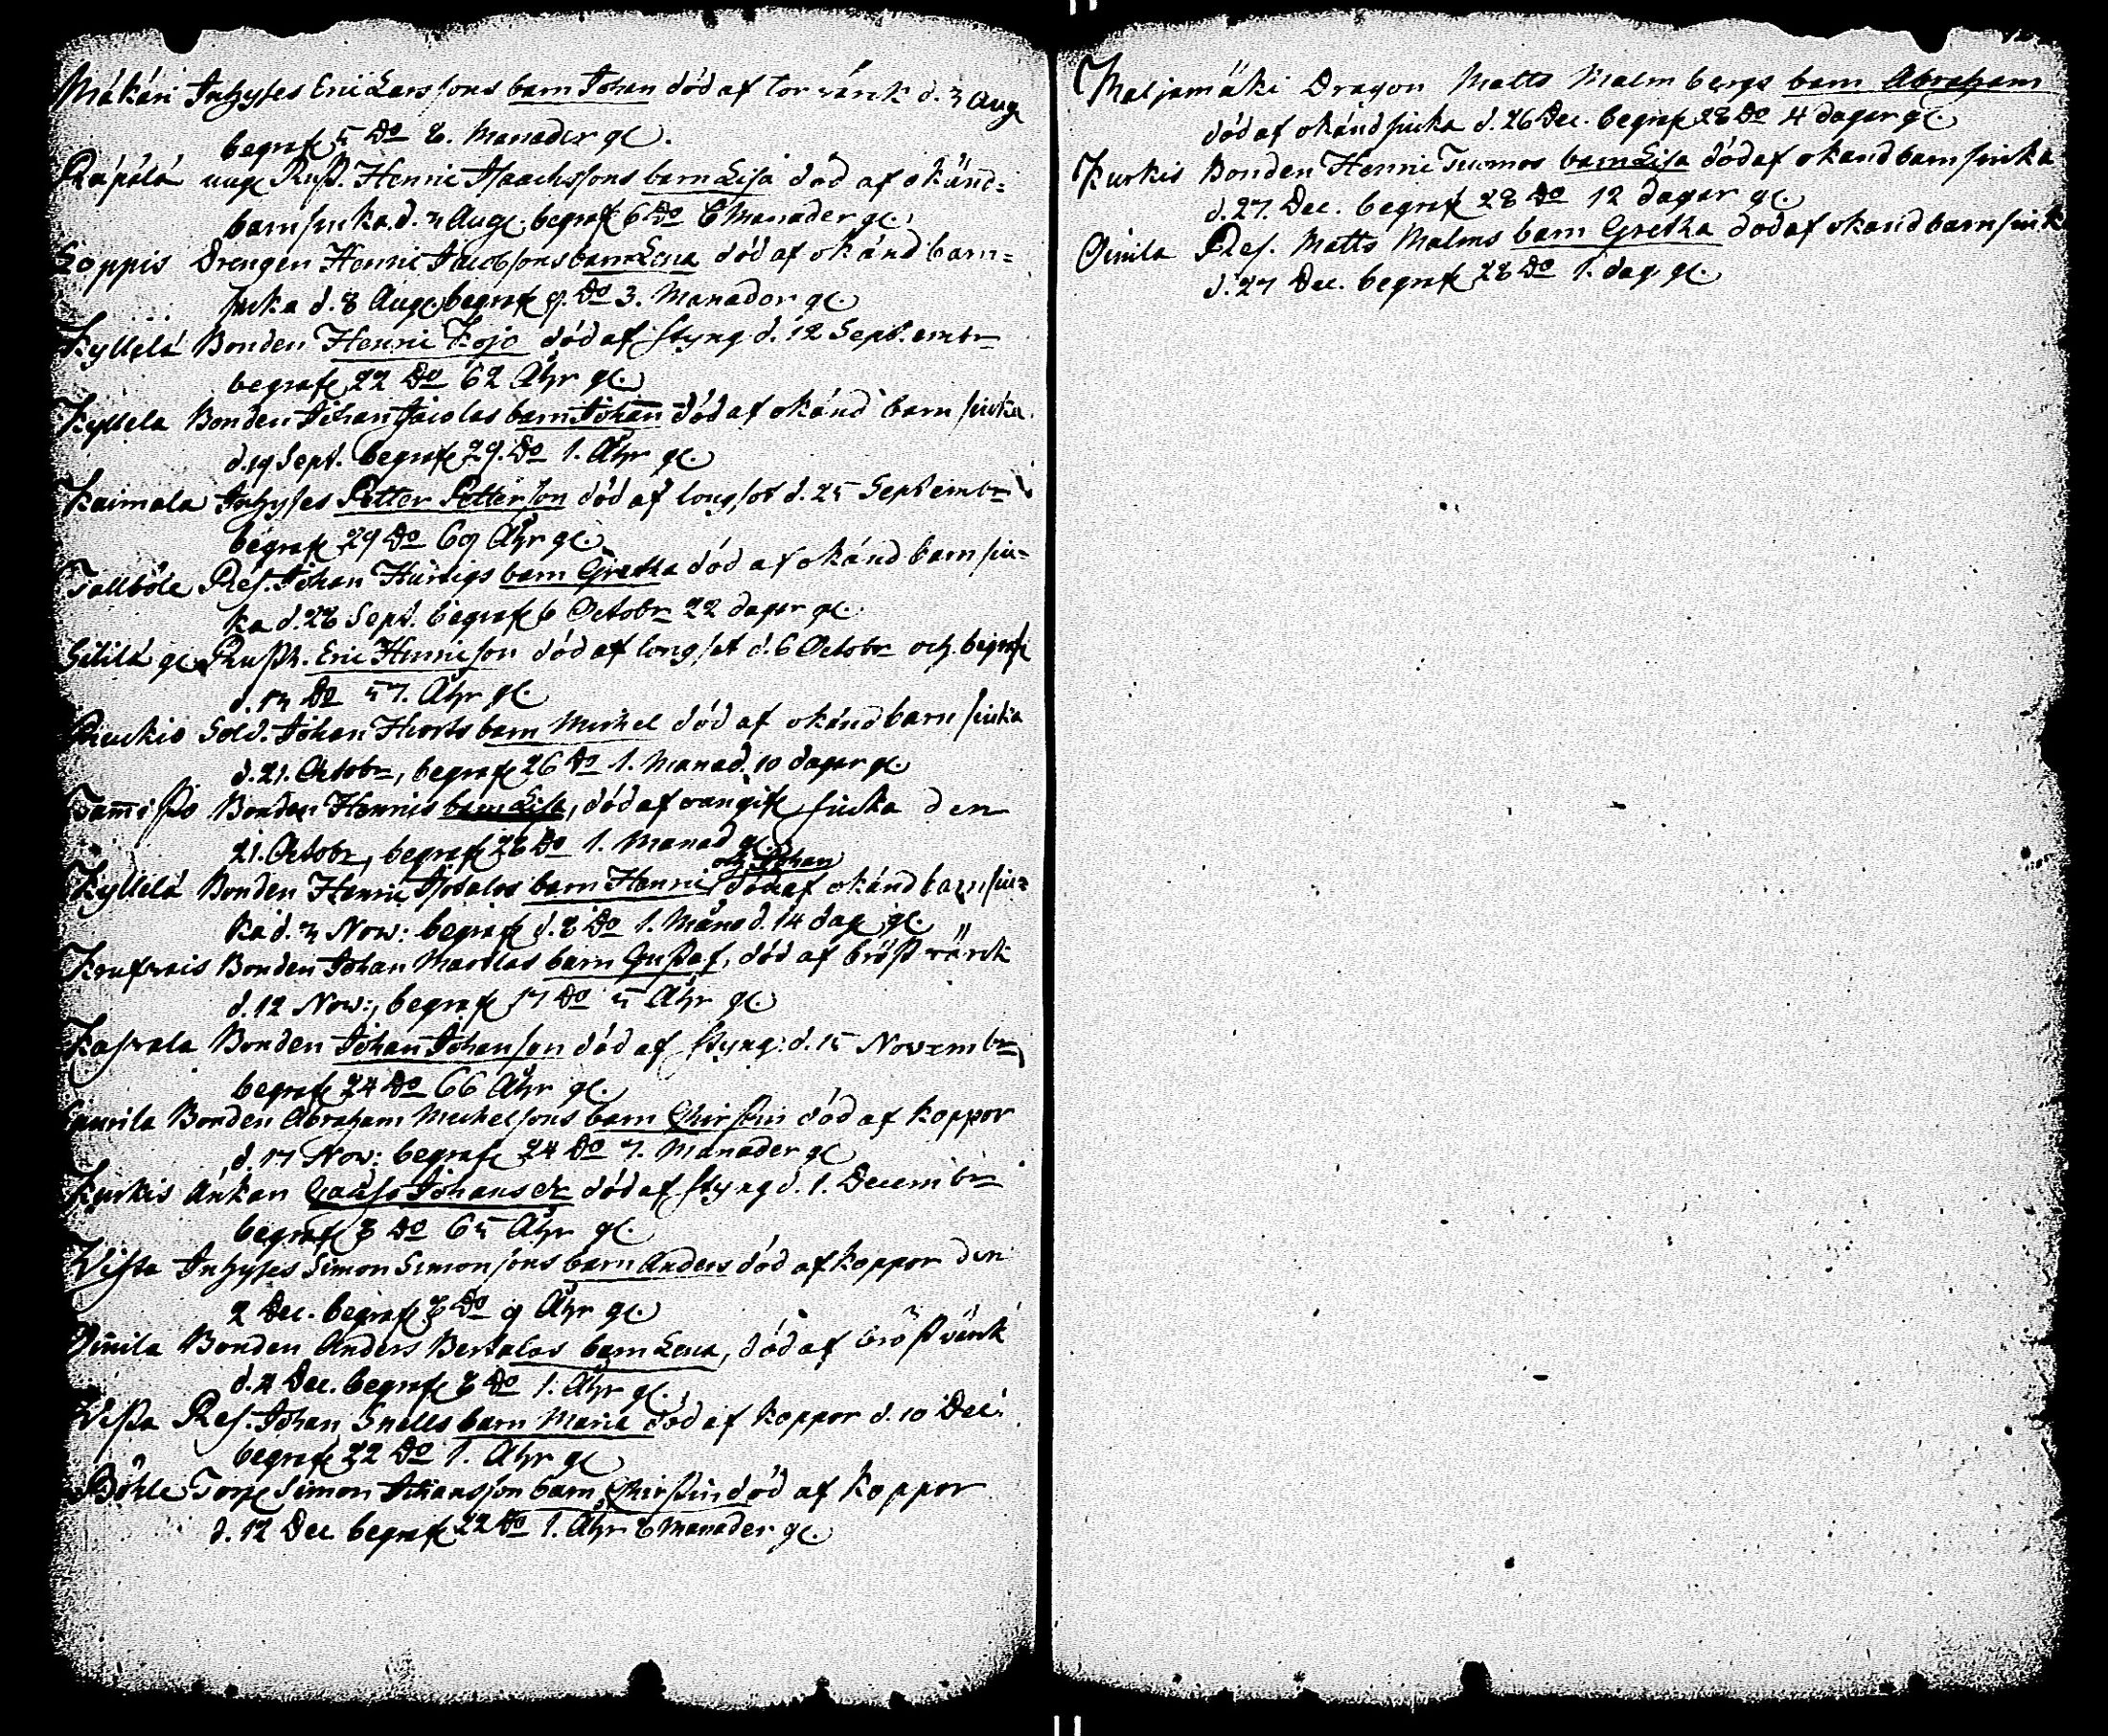 Mäkäri Inhyses Eric Larssons barn Johan död af torrvärk d. 3 Aug
begrafs 5 Do 8. Månader gl.
Räpälä ung Rust. Henric Isaachssons barn Lisa död af okänd-
barnsiuka d. 3 Aug. begrafs 6 Do 6 Månader gl.
Loppis Drengen Henric Jacobsons barn Lena död af okänd barn-
siuka d. 8 Aug. begrafs 9. Do 3. Månador gl.
Kyllelä Bonden Henric Kojo död af styng d. 12 Septembr
begrafs 22 Do 62 Åhr gl.
Kyllela Bonden Johan Jacolas barn Johan död af okänd barn siuka
d. 19 Sept. begrafs 29. Do 1. Åhr gl.
Kaimala Inhyses Petter Petterson död af longsot d. 25 Septembr
begrafs 29 Do 69 Åhr gl.
Tallböle Res. Johan Hurtigs barn Gretha död af okänd barn siu-
ka d. 28 Sept. begrafs 6 Octobr 22 dagar gl.
gl. Rusth. Eric Henricson död af longsot d. 6 Octobr och begrafs
d. 13 Do 57. Åhr gl.
Sold. Johan Hiorts barn Michel död af okänd barn siuka
d. 21. Octobr, begrafs 26 Do 1. Månad. 10 dagar gl.
Bonden Henrics barn Lisa, död af siuka den
21. Octobr, begrafs 26 Do 1. Månad gl.
och Johan
Kyllelä Bonden Henric barn Henric död af okänd barn siu-
ka d. 3 Nov: begrafs d. 8 Do 1. Månad. 14 dag. gl.
Bonden Johan Marttas barn Gustaf, död af bröst värck
d. 12 Nov:, begrafs 17 Do 5 Åhr gl.
Kasvala Bonden Johan Johanson död af styng: d. 15 Novembr,
begrafs 24 Do 66 Åhr gl.
Bonden Abraham Michelsons barn Christin död af koppor
d. 17 Nov: begrafs 24 Do 7. Månader gl
Kurkis Änkan Johansdr död af styng d. 1. Decembr
begrafs 8 Do 65 Åhr gl
Vista Inhyses Simon Simonsons barn Anders död af koppor den
2 Dec. begrafs 8 Do 9 Åhr gl.
Oinila Bonden Anders Bertalas barn Lena, död af bröstvärk
d. 4 Dec. begrafs 8 Do 1. Åhr gl.
Vista Res. Johan Snells barn Maria död af koppor d. 10 Dec.
begrafs 22 Do 1. Åhr gl
Böhle Torp. Simon Johansson barn, Christin död af koppor
d. 12 Dec begrafs 22 Do 1. Åhr 8 Månader gl.
Maljamäki Dragon Matts Malmbergs barn Abraham
död af okänd siuka d. 26 Dec. begrafs 28 Do 4 dagar gl.
Kurkis Bonden Henric Tuomos barn Lisa död af okand barn siuka
d. 27. Dec. begrafs 28 Do 12 dagar gl.
Oinila Res. Matts Malms barn Gretha död af okand barn siuk
d. 27 Dec. begrafs 28 Do 1. dag gl.